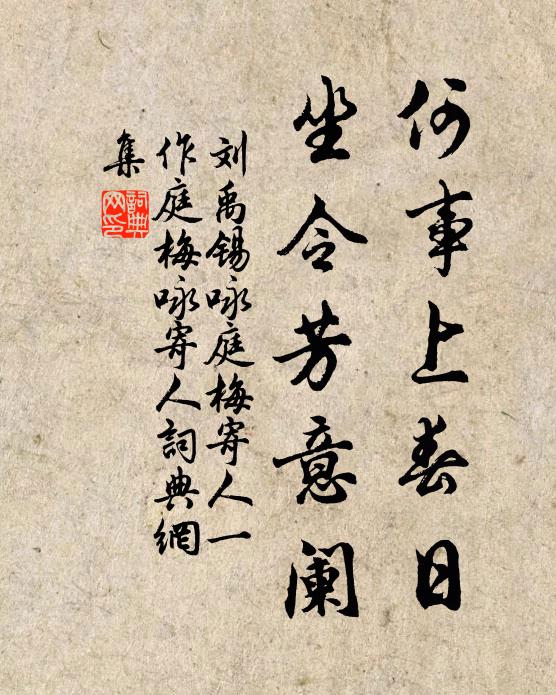 何事上春日
坐令芳意阑
刘禹锡咏庭梅寄人一
作庭梅咏寄人詞典網
集
詞典
网印